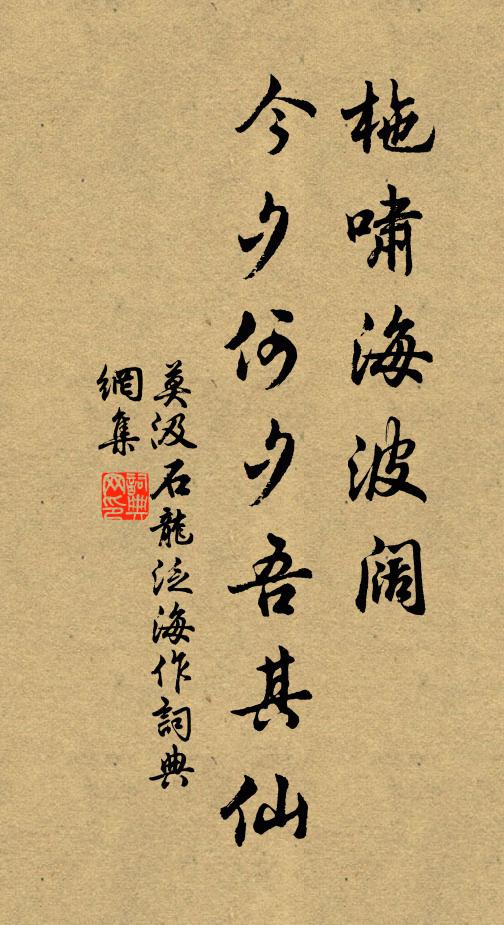 柂嘯海波闊
今夕何夕吾其仙
莫汲石龍泛海作詞典
網集
詞典
网印